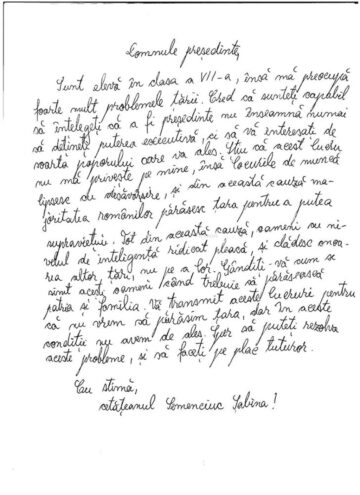 Domnule președinte,
Sunt elevă în clasa a VII-a, însă mă preocupă
foarte mult problemele țării. Cred că sunteți capabil
să înțelegeți că a fi președinte nu înseamnă numai
să dețineți puterea executivă, ci să vă interesați de
soarta poporului care va ales. Știu că acest lucru
nu mă privește pe mine, însă locurile de muncă
lipsesc cu desăvârsire, și din această cauză ma-
joritatea românilor părăsesc țara pentru a putea
supraviețui. Tot din această cauză, oameni cu ni-
velul de inteligență ridicat pleacă, și clădesc onoa-
rea altor țări, nu pe a lor. Gândiți-vă cum se
simt acești oameni când trebuie să părăsească
patria și familia. Vă transmit aceste lucruri pentru
că nu vrem să părăsim țara, dar în aceste
condiții nu avem de ales. Sper să puteți rezolva
aceste probleme, și să faceți pe plac tuturor.
Cu stimă,
cetățeanul Semenciuc Sabina!